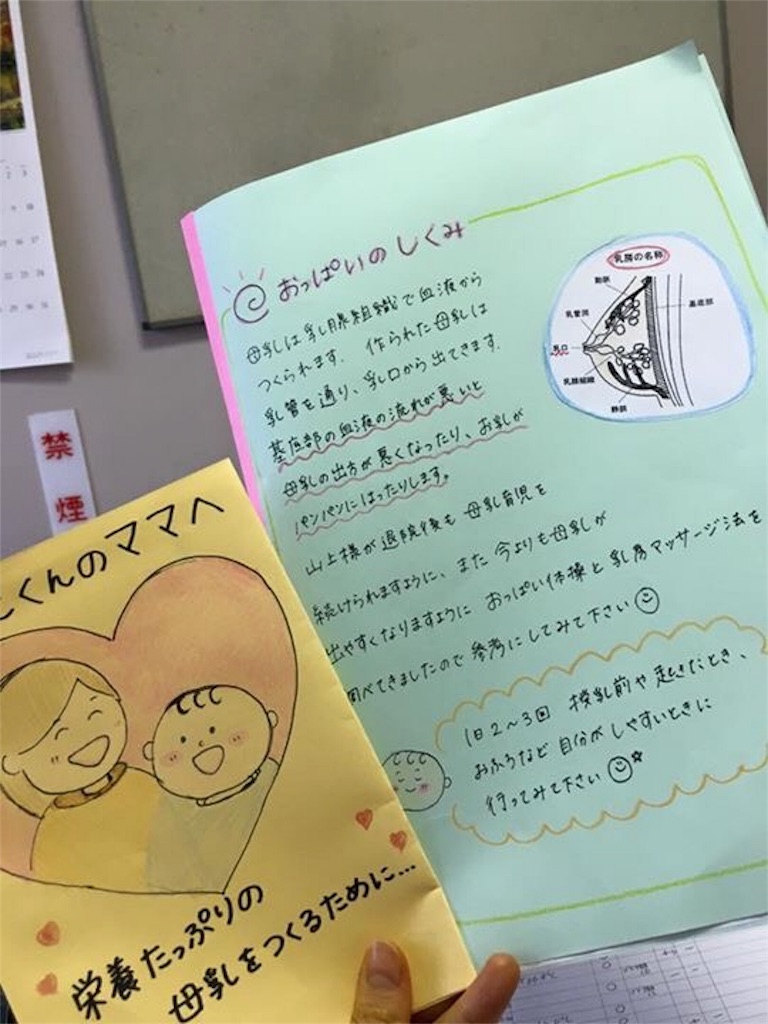 おっぱいのしくみ
母乳は乳腺組織で血液から
つくられます. 作られた母乳は
乳管を通り、乳口から出てきます.
基底部の血液の流れが悪いと
母乳の出方が悪くなったり、お乳が
パンパンにはったりします。
山上様が退院後も 母乳育児を
続けられますように、また 今よりも母乳が
出やすくなりますように おっぱい体操と 乳房マッサージ法を
調べてきましたので 参考にしてみて下さい
1日2〜3回 授乳前や 起きたとき、
おふろなど 自分がしやすいときに
行ってみて下さい
乳房の名称
動脈
乳管洞
基底部
乳口
乳腺組織
静脈
禁
煙
くんのママへ
栄養たっぷりの
母乳をつくるために…